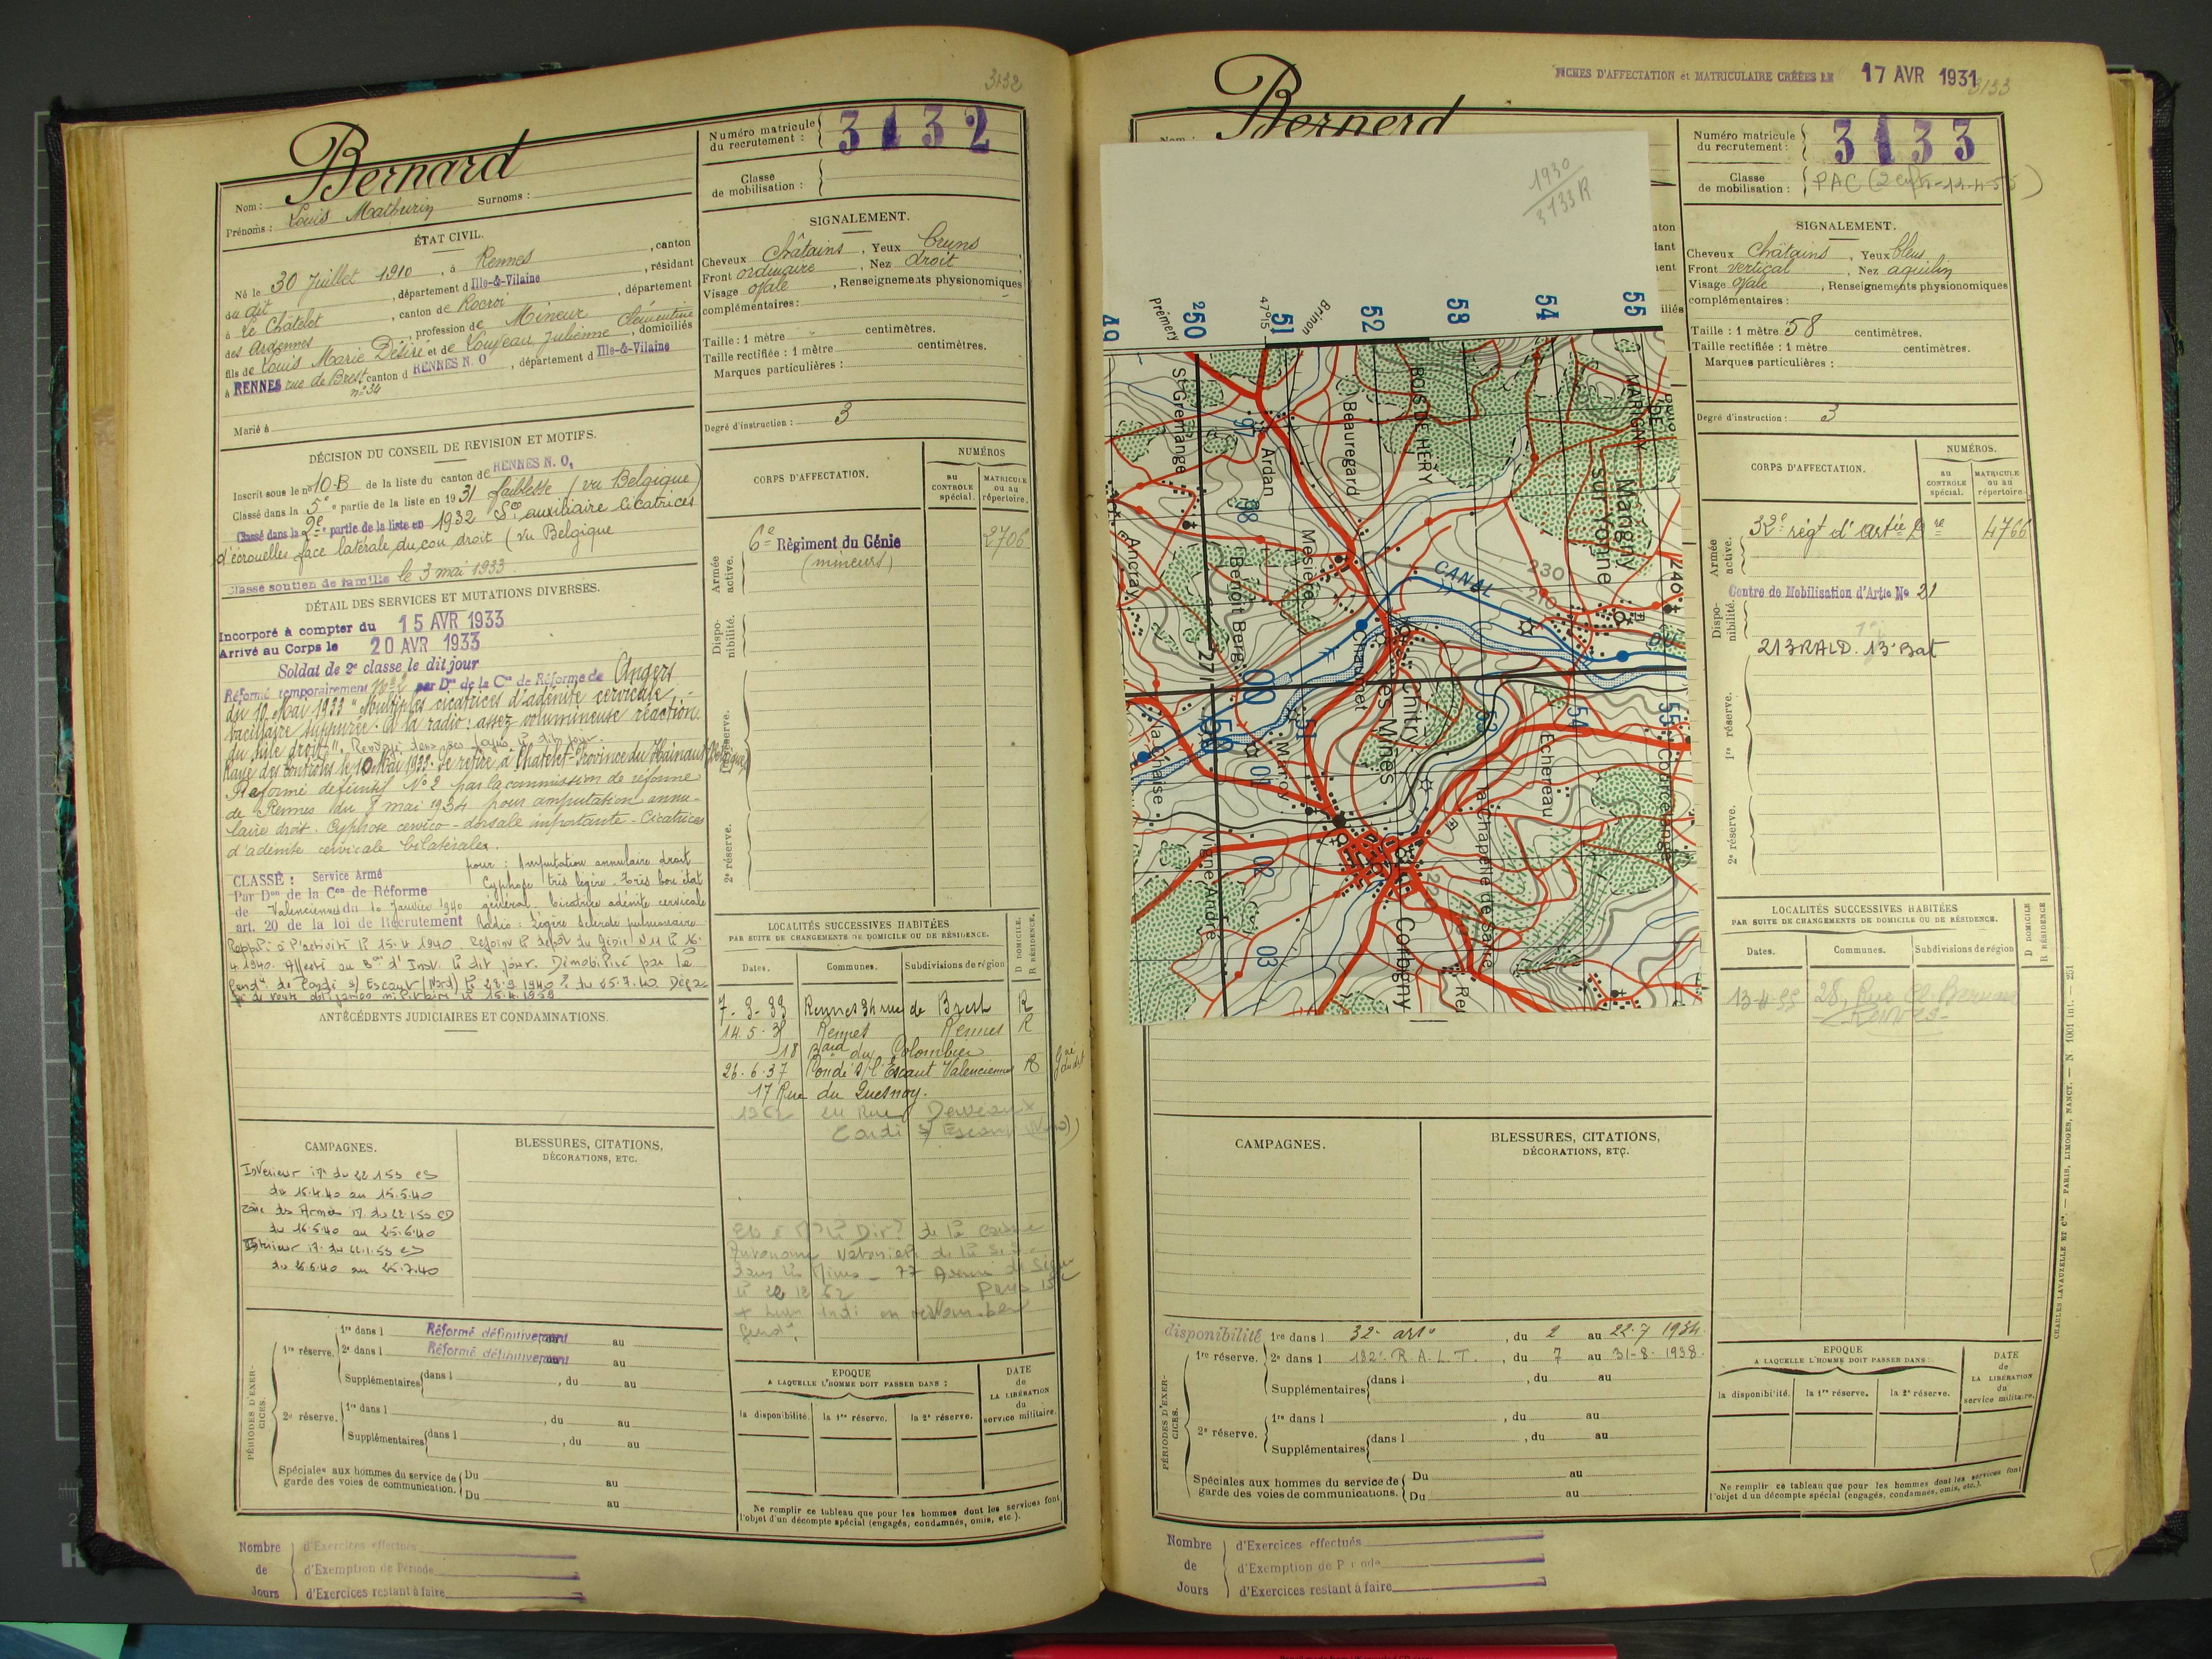 3132
Bernard
Nom :
Prénoms : Louis Mathurin Surnoms :
Numéro matricule du recrutement : 3132
Classe de mobilisation :
ÉTAT CIVIL.
Né le 30 Juillet 1910, à Rennes, canton
du dit, département d Ille-&-Vilaine, résidant
à Le Châtelet, canton de Rocroi, département
des Ardennes, profession de Mineur
fils de Louis Marie Désiré et de Louzeau Julienne Clémentine, domiciliés
à RENNES rue de Brest canton d RENNES N. O, département d Ille-&-Vilaine
n° 34
Marié à
SIGNALEMENT.
Cheveux Châtains, Yeux bruns
Front ordinaire, Nez droit
Visage ovale, Renseignements physionomiques
complémentaires :
Taille : 1 mètre centimètres.
Taille rectifiée : 1 mètre centimètres.
Marques particulières :
Degré d'instruction : 3
DÉCISION DU CONSEIL DE REVISION ET MOTIFS.
Inscrit sous le n° 10-B de la liste du canton de RENNES N. O.
Classé dans la 5e partie de la liste en 1931 faiblesse (vu Belgique)
Classé dans la 2e partie de la liste en 1932 Sce auxiliaire Cicatrices
d'écrouelles face latérale du cou droit (Vu Belgique
Classé soutien de famille le 3 mai 1933
DÉTAIL DES SERVICES ET MUTATIONS DIVERSES.
Incorporé à compter du 15 AVR 1933
Arrivé au Corps le 20 AVR 1933
Soldat de 2e classe le dit jour
Réformé temporairement N° 2 par Don de la Con de Réforme de Angers
du 10 Mai 1933 "Multiples cicatrices d'adénite cervicale
bacillaire suppurée. A la radio : assez volumineuse réaction
du hile droit". Renvoyé dans ses foyers le dit jour.
Rayé des contrôles le 10 Mai 1933. Se retire à Chatelet-Province du Hainaut (Belgique)
Réformé définitif N° 2 par la commission de réforme
de Rennes du 8 mai 1934 pour amputation annu-
laire droit. Cyphose cervico-dorsale importante - Cicatrices
d'adénite cervicale bilatérales.
CLASSÉ : Service Armé pour : Amputation annulaire droit
Par Don de la Con de Réforme Cyphose très légère. très bon état
de Valenciennes du 10 Janvier 1940 général. Cicatrice adénite cervicale
art. 20 de la loi de Recrutement Radio : Légère sclérose pulmonaire
Rappelé à l'activité le 15.4.1940 Rejoint le dépôt du Génie N° 11 le 16.
4.1940. Affecté au Bon d'Inst. le dit jour. Démobilisé par la
Gendie de Condé s/ Escaut (Nord) le 28.9.1940 du 25.7.40 Déga-
gé de toute obligation militaire le 15.4.1959
ANTÉCÉDENTS JUDICIAIRES ET CONDAMNATIONS.
CAMPAGNES.
Intérieur
du 15.4.40 au 15.5.40
Zone des Armées
du 16.5.40 au 25.6.40
Intérieur
du 26.6.40 au 25.7.40
BLESSURES, CITATIONS, DÉCORATIONS, ETC.
CORPS D'AFFECTATION.
NUMÉROS
AU CONTROLE spécial.
MATRICULE ou au répertoire.
Armée active.
6e Régiment du Génie 2706
(mineurs)
Disponibilité.
1re réserve.
2e réserve.
LOCALITÉS SUCCESSIVES HABITÉES
PAR SUITE DE CHANGEMENTS DE DOMICILE OU DE RÉSIDENCE.
D DOMICILE.
R RÉSIDENCE.
Dates. Communes. Subdivisions de région
7-3-33 Rennes 34 rue de Brest R
14.5.3 Rennes Rennes R
18 Bard du Colombier
26.6.37 Condé s/l'Escaut Valenciennes R
17 Rue du Quesnoy.
1962 Rue Derveaux
Condé s/ Escaut (Nord)
77 Avenue de Ségur
Paris 15
PÉRIODES D'EXERCICES.
1re réserve. 1re dans l Réformé définitivement au
2e dans l Réformé définitivement au
Supplémentaires dans l , du au
2e réserve. 1re dans l , du au
Supplémentaires dans l , du au
Spéciales aux hommes du service de garde des voies de communication. Du au
Du au
EPOQUE
A LAQUELLE L'HOMME DOIT PASSER DANS :
la disponibilité. la 1re réserve. la 2e réserve.
DATE de LA LIBÉRATION du service militaire.
Ne remplir ce tableau que pour les hommes dont les services font
l'objet d'un décompte spécial (engagés, condamnés, omis, etc.).
Nombre de Jours
d'Exercices effectués
d'Exemption de Période
d'Exercices restant à faire
FICHES D'AFFECTATION et MATRICULAIRE CRÉÉES LE 17 AVR 1931
3133
Bernerd
Nom :
Numéro matricule du recrutement : 3133
Classe de mobilisation : PAC
1930
3133 R
SIGNALEMENT.
Cheveux Châtains, Yeux bleus
Front vertical, Nez aquilin
Visage ovale, Renseignements physionomiques
complémentaires :
Taille : 1 mètre 58 centimètres.
Taille rectifiée : 1 mètre centimètres.
Marques particulières :
Degré d'instruction : 3
49
250
51
52
53
54
55
Prémery
47°15
Brinon
St Gremange
97
Ardan
Beauregard
BOIS DE HÉRY
MARIGNY
Marigny
sur Yonne
98
Ancray
Mesière
Benoit Berg.
CANAL
230
240
271
Chaumet
Chitry
les Mines
00
Marcy
Echereau
Corcelange
01
Vignes André
la Chapelle de Salle
02
03
Corbigny
CORPS D'AFFECTATION.
NUMÉROS.
AU CONTROLE spécial.
MATRICULE ou au répertoire.
Armée active.
32e régt d'artie Dre 4766
Centre de Mobilisation d'Artie No 21
Disponibilité.
213 RALD. 13e Bat
1re réserve.
2e réserve.
LOCALITÉS SUCCESSIVES HABITÉES
PAR SUITE DE CHANGEMENTS DE DOMICILE OU DE RÉSIDENCE.
D DOMICILE
R RÉSIDENCE
Dates. Communes. Subdivisions de région
13-4-55 28, Rue Cl. Bernard
RENNES
CAMPAGNES.
BLESSURES, CITATIONS, DÉCORATIONS, ETC.
PÉRIODES D'EXERCICES.
disponibilité 1re dans l 32e arie, du 2 au 22-7 1934.
1re réserve. 2e dans l 182e R.A.L.T., du 7 au 31-8-1938.
Supplémentaires dans l , du au
2e réserve. 1re dans l , du au
Supplémentaires dans l , du au
Spéciales aux hommes du service de garde des voies de communications. Du au
Du au
EPOQUE
A LAQUELLE L'HOMME DOIT PASSER DANS :
la disponibilité. la 1re réserve. la 2e réserve.
DATE de LA LIBÉRATION du service militaire.
Ne remplir ce tableau que pour les hommes dont les services font
l'objet d'un décompte spécial (engagés, condamnés, omis, etc.).
CHARLES-LAVAUZELLE ET Cie. — PARIS, LIMOGES, NANCY. — N 1001 int. — 251
Nombre de Jours
d'Exercices effectués
d'Exemption de Période
d'Exercices restant à faire